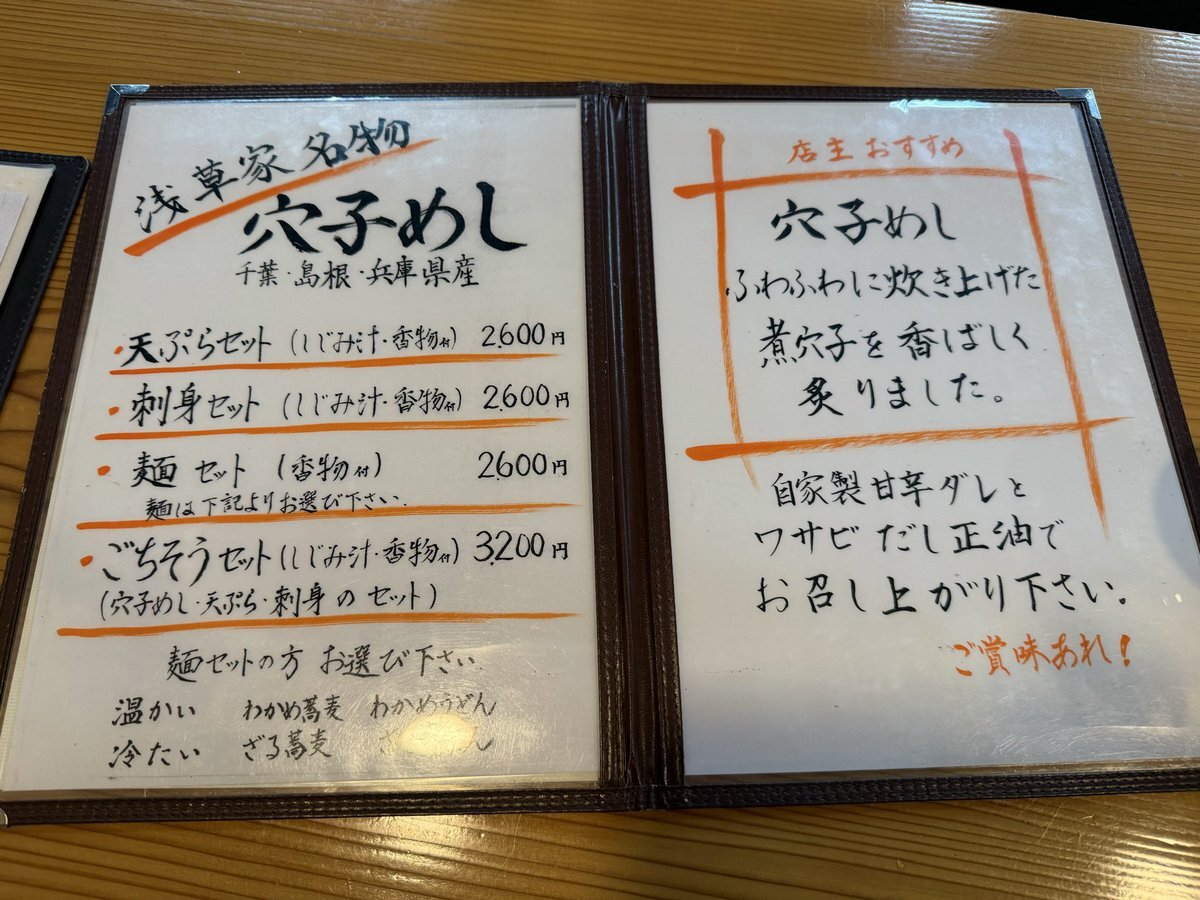 浅草家名物
穴子めし
千葉・島根・兵庫県産
・天ぷらセット(しじみ汁・香物付) 2,600円
・刺身セット(しじみ汁・香物付) 2,600円
・麺セット(香物付) 2,600円
麺は下記よりお選び下さい.
・ごちそうセット(しじみ汁・香物付) 3,200円
(穴子めし・天ぷら・刺身のセット)
麺セットの方 お選び下さい.
温かい わかめ蕎麦 わかめうどん
冷たい ざる蕎麦
店主おすすめ
穴子めし
ふわふわに炊き上げた
煮穴子を香ばしく
炙りました。
自家製甘辛ダレと
ワサビだし正油で
お召し上がり下さい.
ご賞味あれ!